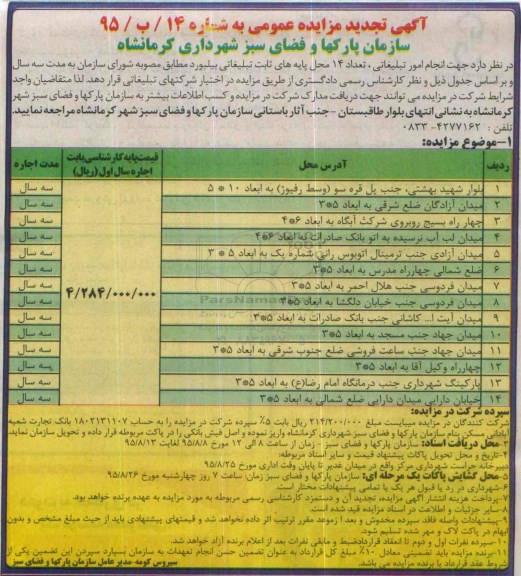 آگهی تجدید مزایده عمومی به شماره ۱۴ / ب / ۹۵
سازمان پارکها و فضای سبز شهرداری کرمانشاه
در نظر دارد جهت انجام امور تبلیغاتی ، تعداد ۱۴ محل پایه های ثابت تبلیغاتی بیلبورد مطابق مصوبه شورای سازمان به مدت سه سال
و بر اساس جدول ذیل و نظر کارشناس رسمی دادگستری از طریق مزایده در اختیار شرکتهای تبلیغاتی قرار دهد. لذا متقاضیان واجد
شرایط شرکت در مزایده می توانند جهت دریافت مدارک شرکت در مزایده و کسب اطلاعات بیشتر به سازمان پارکها و فضای سبز شهر
کرمانشاه به نشانی انتهای بلوار طاقبستان - جنب آثار باستانی سازمان پارکها و فضای سبز شهر کرمانشاه مراجعه نمایید.
تلفن : ۴۲۷۷۱۶۲- ۰۸۳۳
۱-موضوع مزایده:
ردیف آدرس محل قیمت پایه کارشناسی بابت اجاره سال اول (ریال) مدت اجاره
۱ بلوار شهید بهشتی، جنب پل قره سو (وسط رفیوژ) به ابعاد ۱۰ * ۵ سه سال
۲ میدان آزادگان ضلع شرقی به ابعاد ۵*۳ سه سال
۳ چهار راه بسیج روبروی شرکت آبگاه به ابعاد ۶*۴ سه سال
۴ میدان لب آب نرسیده به اتو بانک صادرات به ابعاد ۶*۴ سه سال
۵ میدان آزادی جنب ترمینال اتوبوس رانی شماره یک به ابعاد ۵ * ۳ سه سال
۶ ضلع شمالی چهارراه مدرس به ابعاد ۵*۳ سه سال
۷ میدان فردوسی جنب هلال احمر به ابعاد ۵*۳ سه سال
۴/۲۸۴/۰۰۰/۰۰۰
۸ میدان فردوسی جنب خیابان دلگشا به ابعاد ۵*۳ سه سال
۹ میدان آیت ا... کاشانی جنب بانک صادرات به ابعاد ۵*۳ سه سال
۱۰ میدان جهاد جنب مسجد به ابعاد ۵*۳ سه سال
۱۱ میدان جهاد جنب ساعت فروشی ضلع جنوب شرقی به ابعاد ۵*۳ سه سال
۱۲ چهارراه وکیل آقا به ابعاد ۵*۳ سه سال
۱۳ پارکینگ شهرداری جنب درمانگاه امام رضا(ع) به ابعاد ۵*۳ سه سال
۱۴ خیابان دارایی میدان دارایی ضلع شمالی به ابعاد ۵*۳ سه سال
سپرده شرکت در مزایده:
شرکت کنندگان در مزایده میبایست مبلغ ۲۱۴/۲۰۰/۰۰۰ ریال بابت ۵٪ سپرده شرکت در مزایده را به حساب ۱۸۰۲۱۳۱۱۰۷ بانک تجارت شعبه
آبادانی مسکن بنام سازمان پارکها و فضای سبز شهرداری کرمانشاه واریز نموده و اصل فیش بانکی را در پاکت مربوطه قرار داده و تحویل سازمان نماید.
۳-محل دریافت اسناد: سازمان پارکها و فضای سبز - زمان از ساعت ۸ الی ۱۲ مورخ ۹۵/۸/۸ لغایت ۹۵/۸/۱۳
۴-تاریخ و محل تحویل پاکات پیشنهاد قیمت و سایر اسناد مربوطه:
دبیرخانه حراست شهرداری مرکز واقع در میدان غدیر تا پایان وقت اداری مورخ ۹۵/۸/۲۵
۵-محل گشایش پاکات یک مرحله ای: سازمان پارکها و فضای سبز زمان: ساعت ۷ روز چهارشنبه مورخ ۹۵/۸/۲۶
۶-شهرداری در رد یا قبول هر یک یا تمامی پیشنهادات مختار است.
۷-پرداخت هزینه انتشار آگهی مزایده، تجدید آن و دستمزد کارشناسی رسمی مربوطه به مورد مزایده به عهده برنده خواهد بود.
۸-سایر جزئیات و اطلاعات در اسناد مزایده قید شده است.
۹-پیشنهادات واصله فاقد سپرده مخدوش و بعد از موعد مقرر ترتیب اثر داده نخواهد شد و قیمتهای پیشنهادی باید از حیث مبلغ مشخص و بدون
ابهام در پاکت لاک و مهر شده تسلیم شود.
۱۰-سپرده نفرات اول و دوم تا انعقاد قرارداد ضبط و مابقی نفرات بعد از اعلام برنده آزاد خواهد شد.
۱۱-برنده مزایده باید تضمینی معادل ۱۰٪ مبلغ کل قرارداد به عنوان تضمین حسن انجام تعهدات به سازمان بسپارد سپردن این تضمین یکی از
شروط عقد قرارداد با برنده مزایده می باشد.
سیروس کومه-مدیر عامل سازمان پارکها و فضای سبز